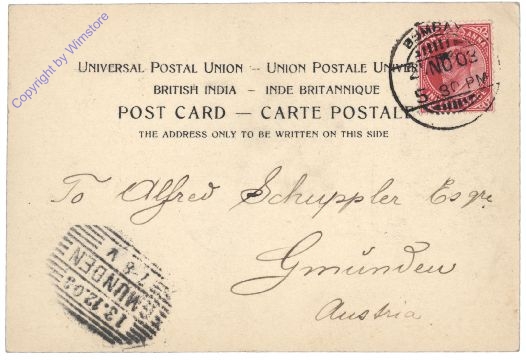 Copyright by Wimstore
BOMBAY
NO 03
5 30 PM
ANNA
UNIVERSAL POSTAL UNION – UNION POSTALE UNIVE
BRITISH INDIA – INDE BRITANNIQUE
POST CARD – CARTE POSTALE
THE ADDRESS ONLY TO BE WRITTEN ON THIS SIDE
To Alfred Schuppler Esqre
Gmünden
Austria
GMUNDEN
13.12.03
7-8 V